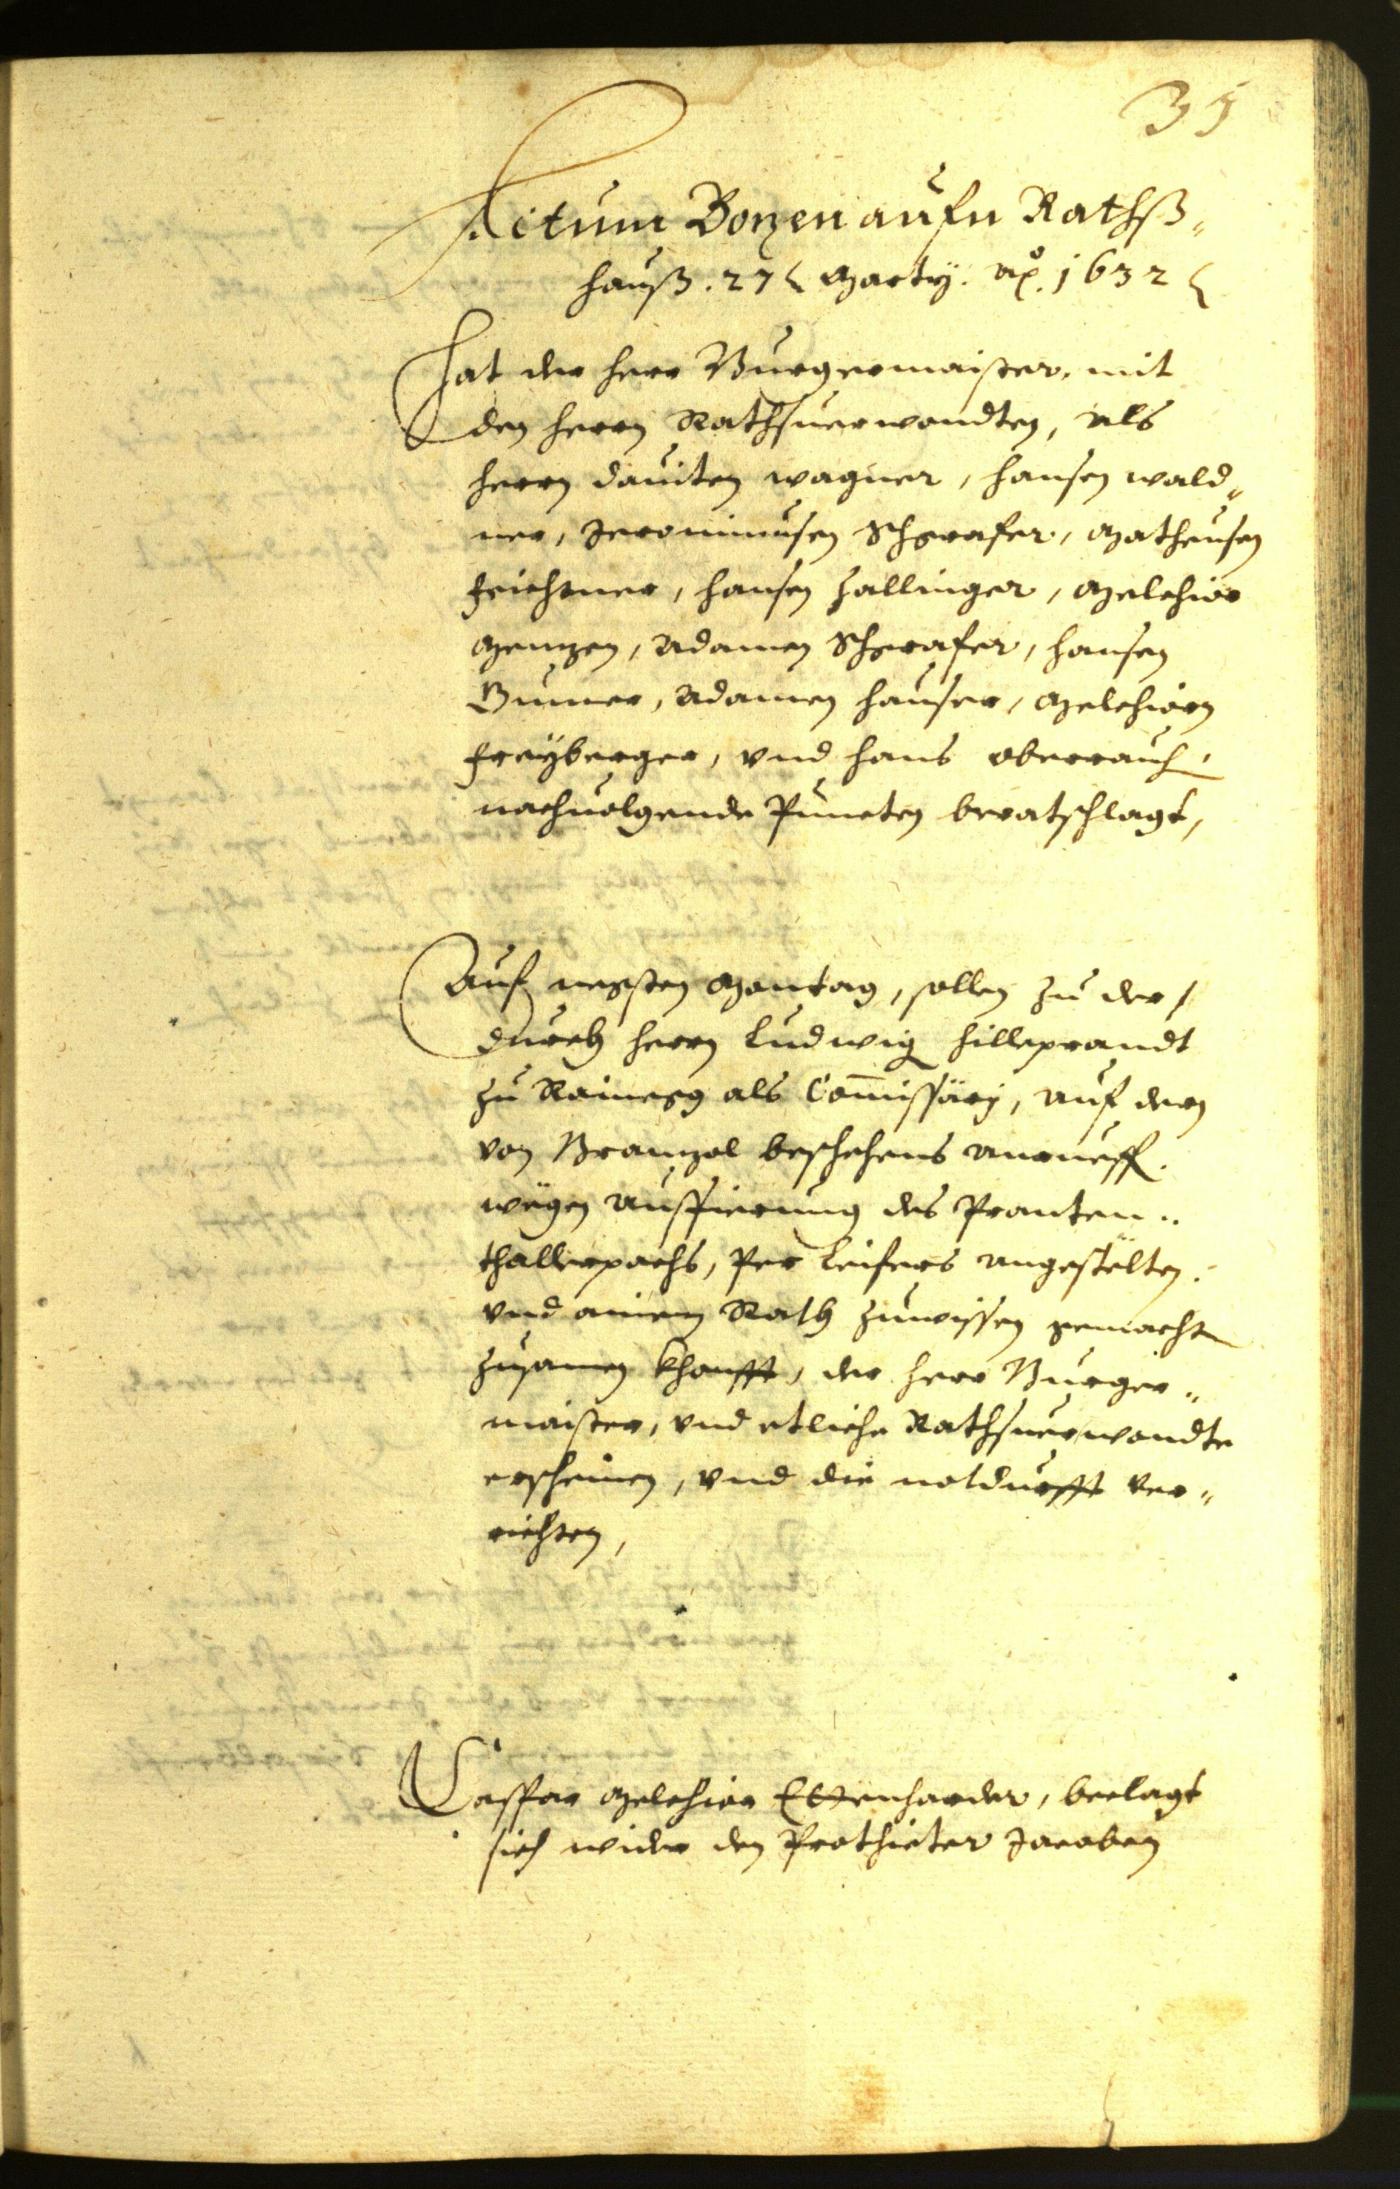 35
Actum Bozen aufn Rathß„
hauß. 27 Marty. Ao. 1632
Hat der herr Burgermaister, mit
den herrn Rathsuerwondten, als
herrn dauiten wagner, hansen wald„
ner, Jeronimusen Schgrafer, Matheusen
feichtner, hansen Zallinger, Melchior
Menzen, Adamen Schgrafer, hansen
Gumer, Adamen hauser, Melchiorn
freyberger, vnd hans oberrauch,
nachuolgende Puncten beratschlagt,
Auf negsten Montag, sollen zu der
durch herrn Ludwig hilleprandt
zu Rainegg als Commissary, auf dern
von Branzol beschehens anrueff.
wëgen ausfierung des Pranten„
thallerpachs, per Leifers angestëlten.
vnd ainem Rath zuwissen gemachte
zusamen khonfft, der herr Burger„
maister, vnd etliche Rathsuerwondte
erscheinen, vnd die notdurfft ver„
richten,
Caspar Melchior Ettenharder, beclagt
sich wider den Prothieter Jacoben